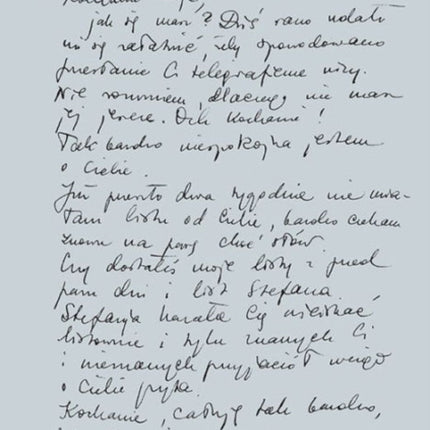 jak się masz? Dziś rano udało
mi się załatwić, żeby spowodowano
przesłanie Ci telegraficznie wizy.
Nie rozumiem, dlaczego nie masz
jej jeszcze. Och Kochanie!
Tak bardzo niespokojna jestem
o Ciebie.
Już prawie dwa tygodnie nie mia-
łam listu od Ciebie, bardzo czekam
znowu na parę choć słów.
Czy dostałeś moje listy z przed
paru dni i list Stefana,
Stefania kazała Cię uściskać
listownie i tylu znanych Ci
i nieznanych przyjaciół wciąż
o Ciebie pyta.
Kochanie, całuję tak bardzo,